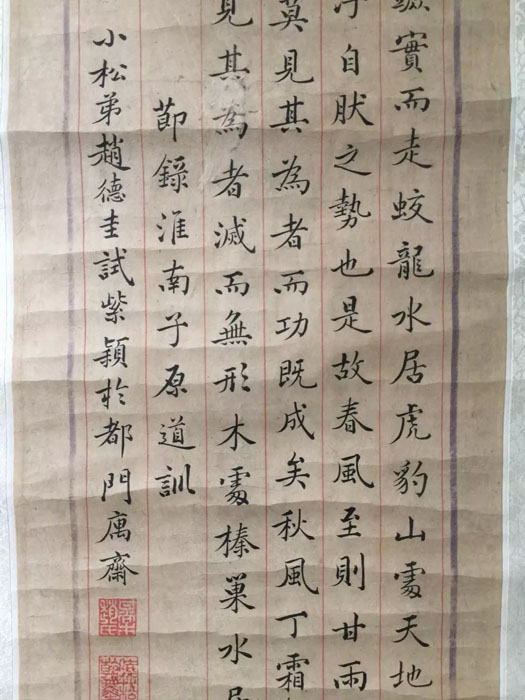 實而走蛟龍水居虎豹山處天地
自肰之勢也是故春風至則甘雨
莫見其為者而功既成矣秋風丁霜
見其為者滅而無形木處榛巢水居
節錄淮南子原道訓
小松弟趙德圭試紫穎於都門寓齋